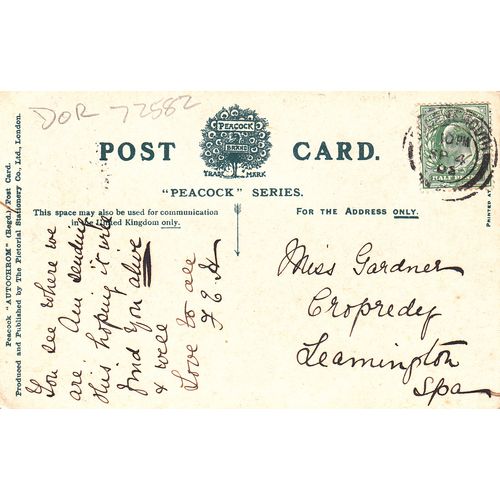 DOR 77582
PEACOCK
BRAND
TRADE MARK
POST CARD.
"PEACOCK" SERIES.
This space may also be used for communication
in the United Kingdom only.
FOR THE ADDRESS ONLY.
10 PM
4
HALF
PRINTED AT
Peacock "AUTOCHROM" (Regd.) Post Card.
Produced and Published by The Pictorial Stationery Co., Ltd., London.
You see where we
are Am sending
this hoping it will
find you alive
& well
Love to all
Miss Gardner
Cropredy
Leamington
Spa